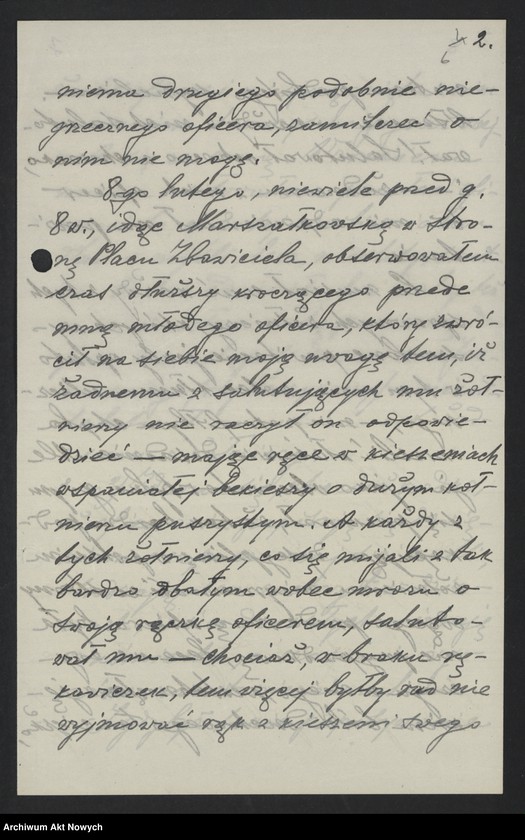 2.
niema drugiego podobnie nie-
grzecznego oficera, zamilczeć o
nim nie mogę.
8-go lutego, niewiele przed g.
8 w., idąc Marszałkowską w stro-
nę Placu Zbawiciela, obserwowałem
czas dłuższy kroczącego przede
mną młodego oficera, który zwró-
cił na siebie moją uwagę tem, iż
żadnemu z salutujących mu żoł-
nierzy nie raczył on odpowie-
dzieć — mając ręce w kieszeniach
wspaniałej bekieszy o dużym koł-
nierzu puszystym. A każdy z
tych żołnierzy, co się mijali z tak
bardzo dbałym wobec mrozu o
swoją rączkę oficerem, saluto-
wał mu — chociaż, w braku rę-
kawiczek, tem więcej byłby rad nie
wyjmować rąk z kieszeni swego
Archiwum Akt Nowych